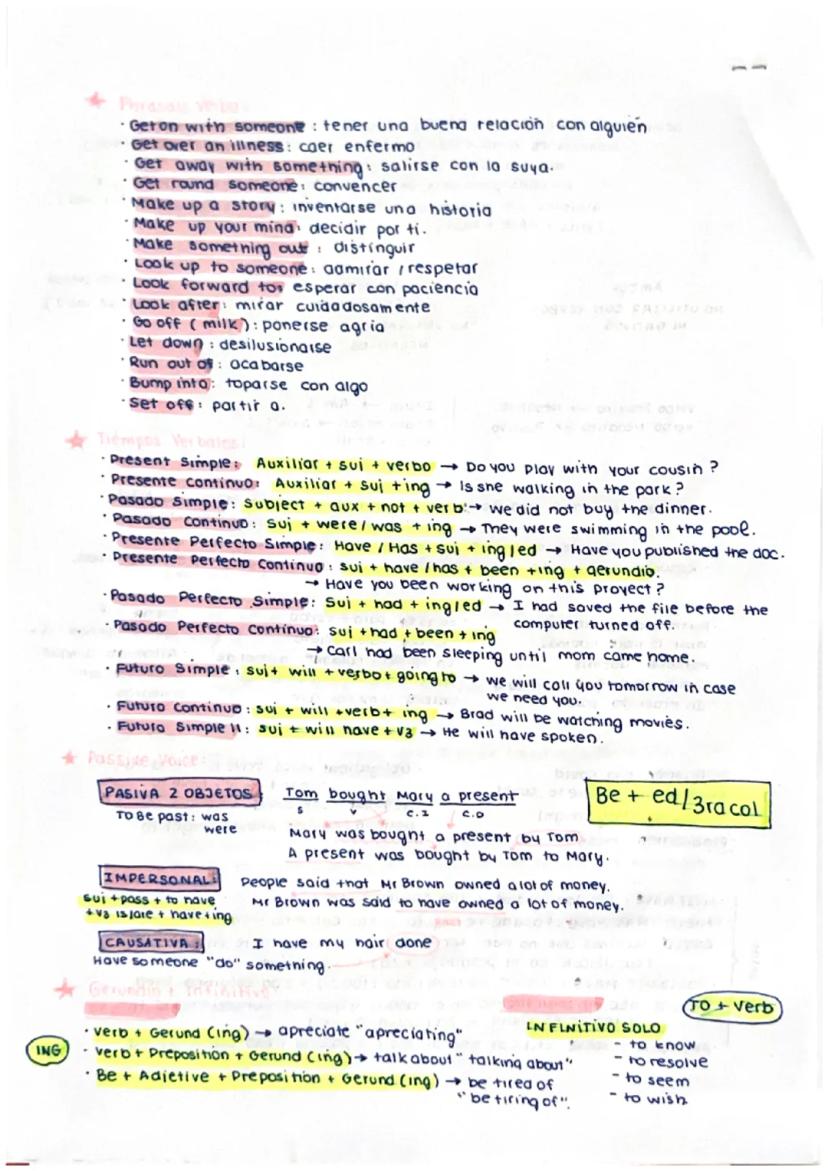 ★ Phrasals Verbs:
· Get on with someone : tener una buena relación con alguien
· Get over an illness : caer enfermo
· Get away with something : salirse con la suya.
· Get round someone : convencer
· Make up a story : inventarse una historia
· Make up your mind : decidir por ti.
· Make something out : distinguir
· Look up to someone : admirar / respetar
· Look forward to : esperar con paciencia
· Look after : mirar cuidadosamente
· Go off ( milk ) : ponerse agria
· Let down : desilusionarse
· Run out of : acabarse
· Bump into : toparse con algo
· Set off : partir a.
★ Tiempos Verbales:
· Present Simple : Auxiliar + suj + verbo → Do you play with your cousin ?
· Presente continuo : Auxiliar + suj + ing → Is she walking in the park ?
· Pasado Simple : Subject + aux + not + verb → we did not buy the dinner.
· Pasado Continuo : Suj + were / was + ing → They were swimming in the pool.
· Presente Perfecto Simple : Have / Has + suj + ing / ed → Have you published the doc.
· Presente Perfecto Continuo : suj + have / has + been + ing + gerundio.
→ Have you been working on this proyect ?
· Pasado Perfecto Simple : Suj + had + ing / ed → I had saved the file before the
computer turned off.
· Pasado Perfecto Continuo : suj + had + been + ing
→ Carl had been sleeping until mom came home.
· Futuro Simple : suj + will + verbo + going to → we will call you tomorrow in case
we need you.
· Futuro Continuo : suj + will + verb + ing → Brad will be watching movies.
· Futuro Simple II : suj + will have + V3 → He will have spoken.
★ Passive Voice:
PASIVA 2 OBJETOS Tom bought Mary a present Be + ed / 3ra col
TO Be past : was S V C.I C.D
were
Mary was bought a present by Tom
A present was bought by Tom to Mary.
IMPERSONAL : People said that Mr Brown owned a lot of money.
suj + pass + to have Mr Brown was said to have owned a lot of money.
+ V3 is/are + have + ing
CAUSATIVA : I have my hair done
Have someone "do" something.
★ Gerundio + Infinitivo
TO + Verb
INFINITIVO SOLO
ING
· verb + Gerund (ing) → apreciate "apreciating"
· verb + Preposition + Gerund (ing) → talk about "talking about"
· Be + Adjetive + Preposition + Gerund (ing) → be tired of
"be tiring of".
- to know
- to resolve
- to seem
- to wish